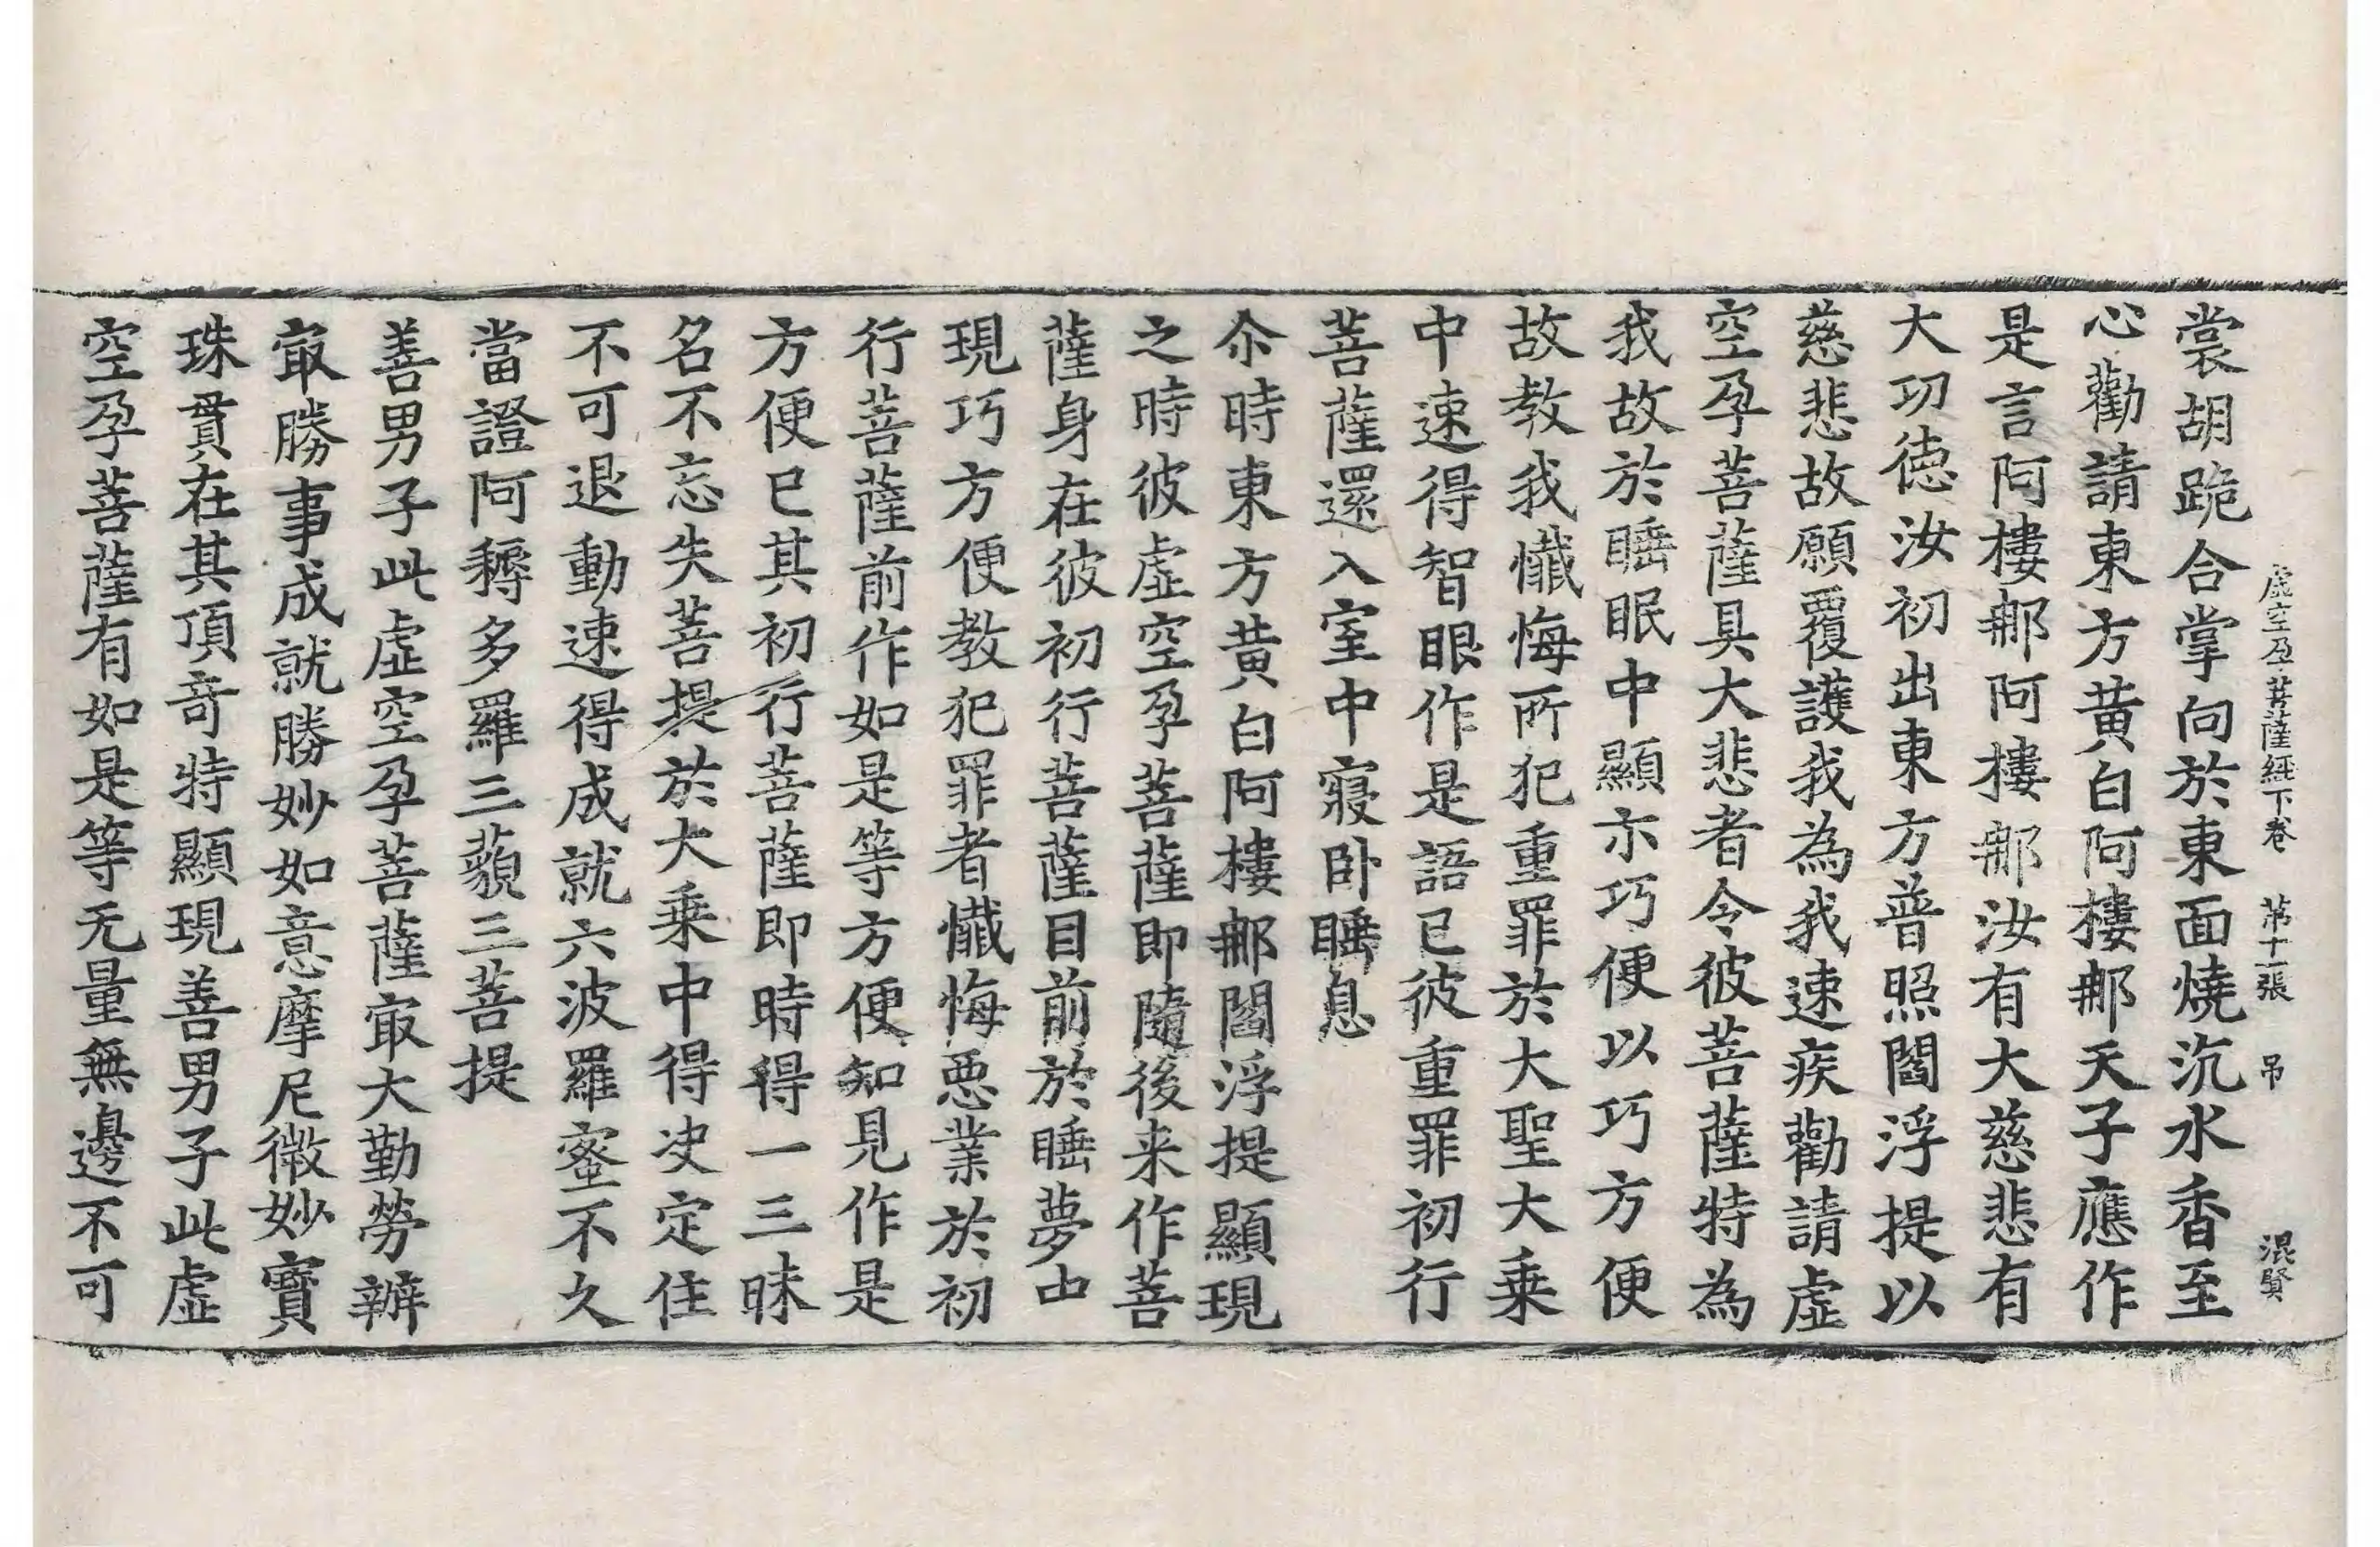 虛空孕菩薩經下卷 苐十一張 吊 混賢
裳胡跪合掌向於東面燒沉水香至
心勸請東方黃白阿樓那天子應作
是言阿樓那阿樓那汝有大慈悲有
大功德汝初出東方普照閻浮提以
慈悲故願覆護我為我速疾勸請虛
空孕菩薩具大悲者令彼菩薩特為
我故於睡眠中顯示巧便以巧方便
故教我懺悔所犯重罪於大聖大乘
中速得智眼作是語已彼重罪初行
菩薩還入室中寢卧睡息
尒時東方黃白阿樓那閻浮提顯現
之時彼虛空孕菩薩即隨後来作菩
薩身在彼初行菩薩目前於睡夢中
現巧方便教犯罪者懺悔惡業於初
行菩薩前作如是等方便知見作是
方便已其初行菩薩即時得一三昧
名不忘失菩提於大乘中得决定住
不可退動速得成就六波羅蜜不久
當證阿耨多羅三藐三菩提
善男子此虛空孕菩薩㝡大勤勞辦
㝡勝事成就勝妙如意摩尼微妙寶
珠貫在其頂竒特顯現善男子此虛
空孕菩薩有如是等无量無邊不可